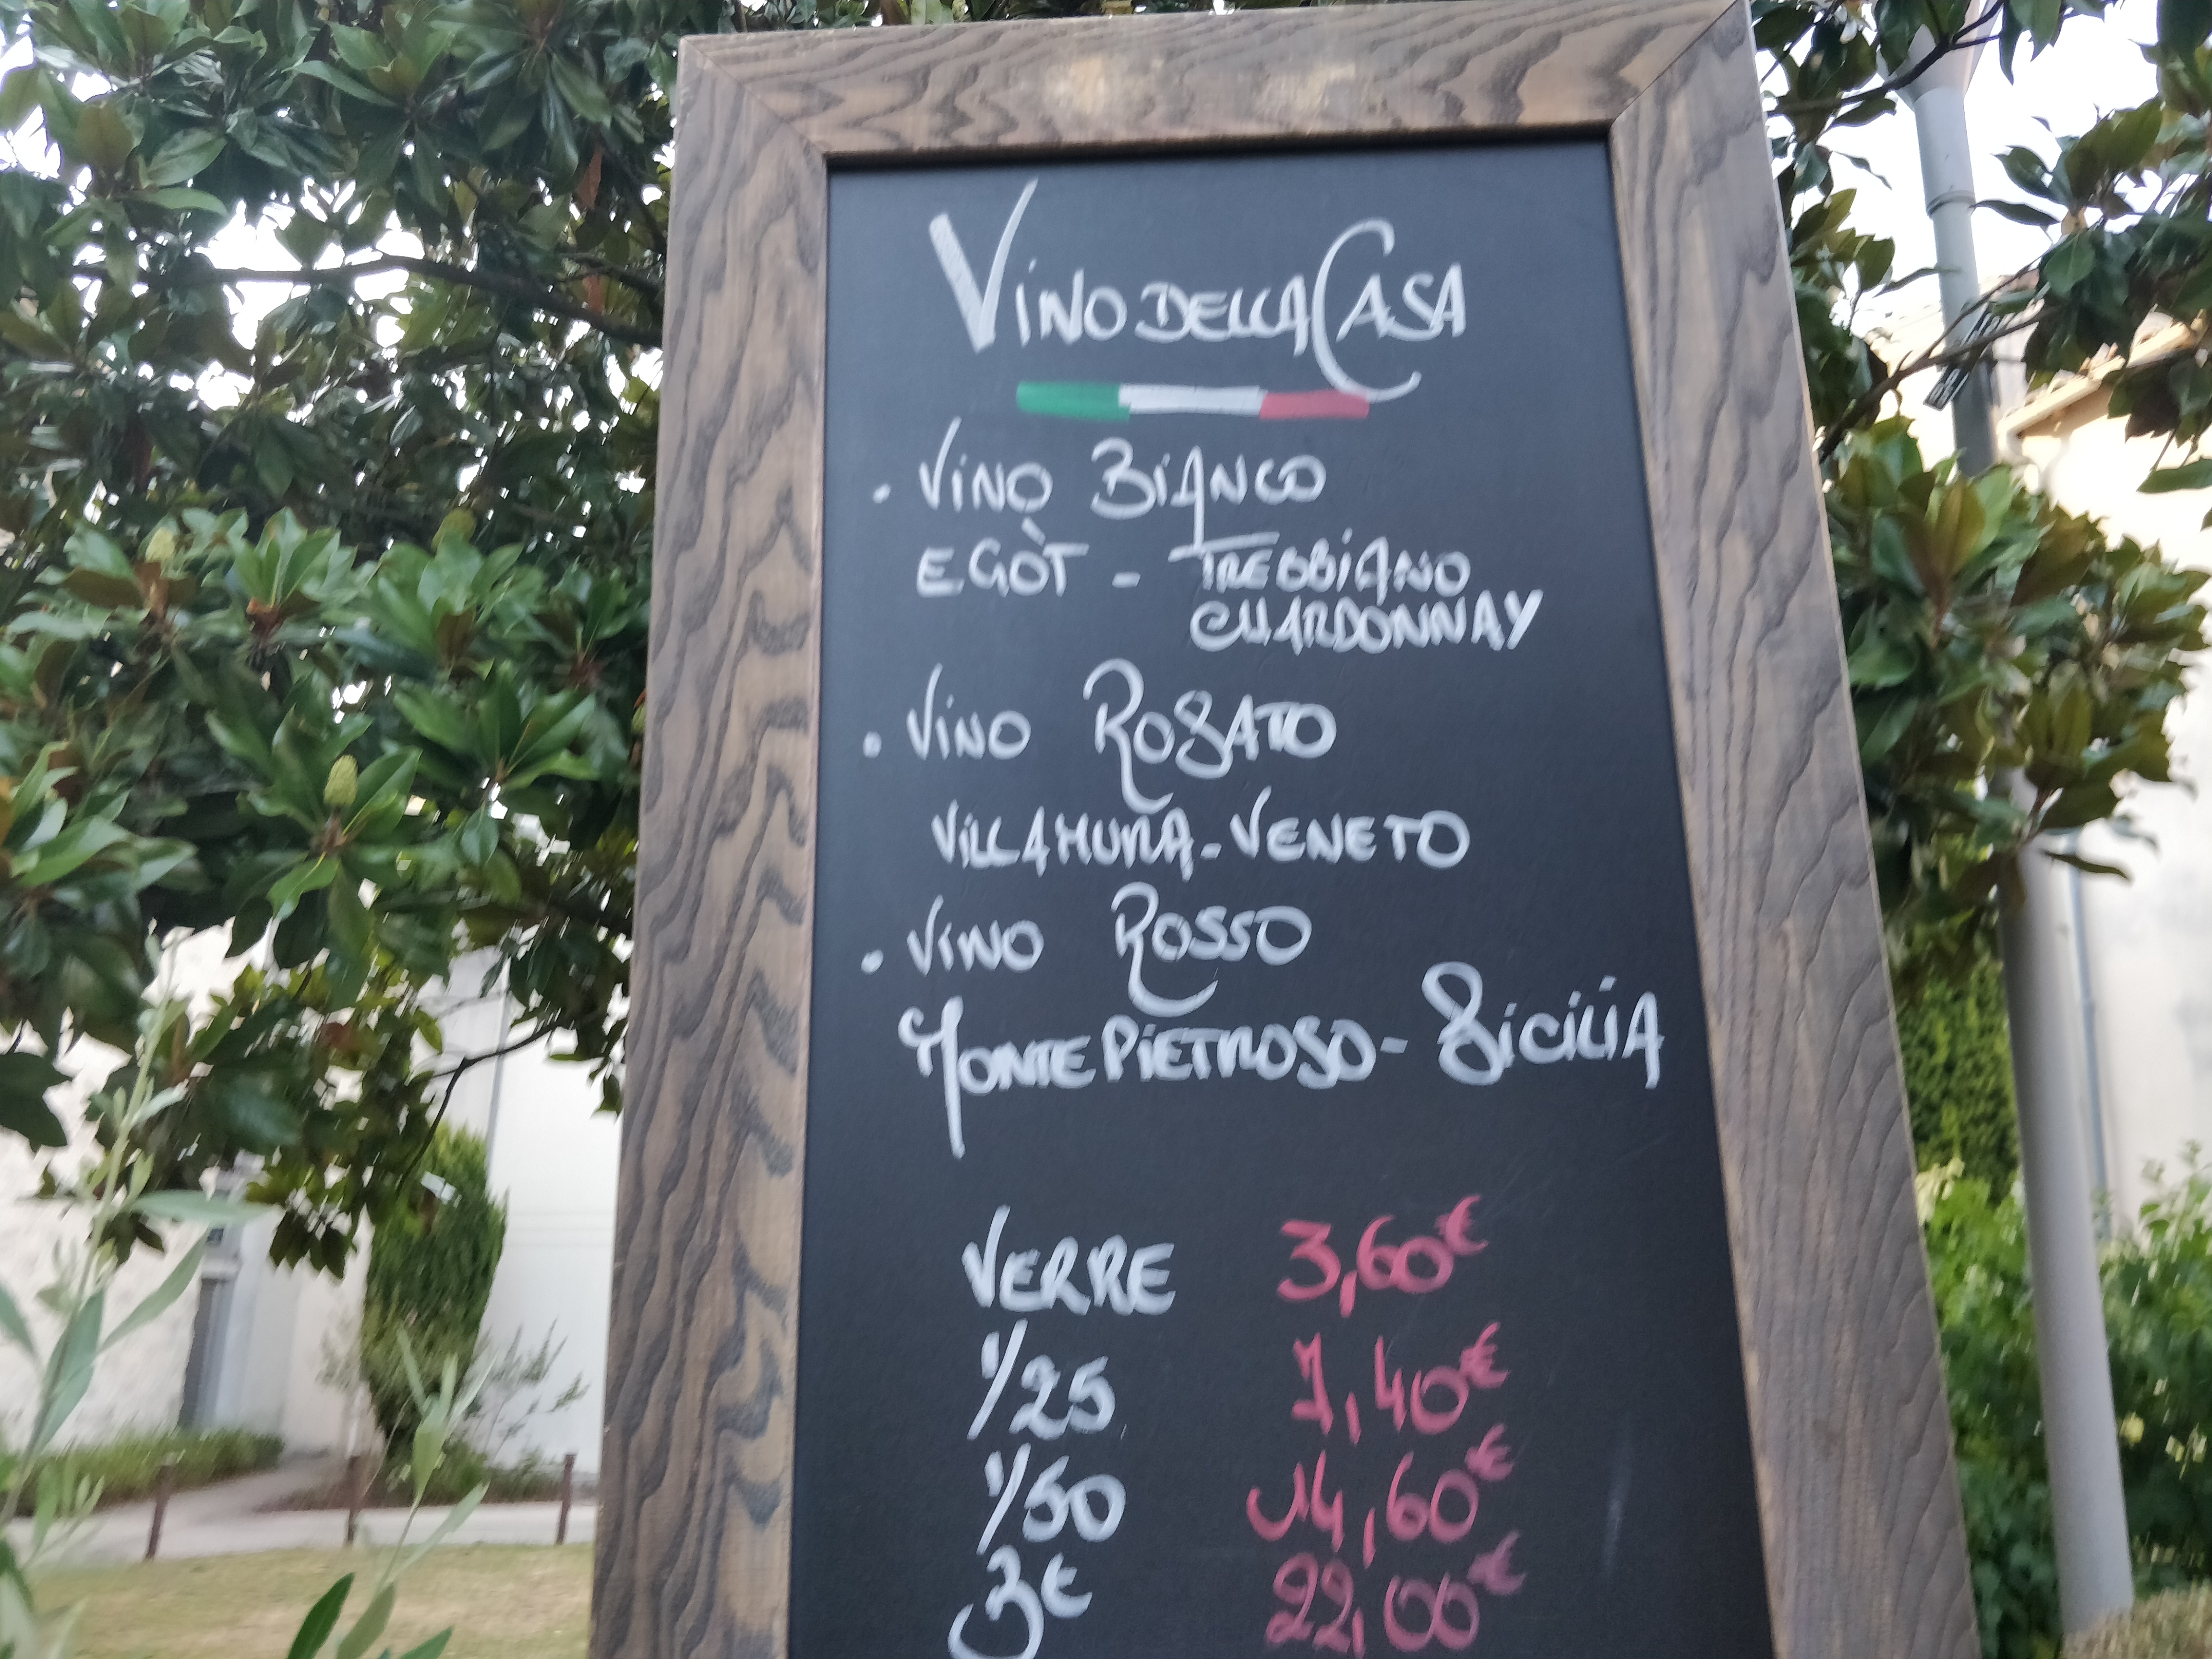 Vino della Casa
. Vino Bianco
EGÒT - TREBBIANO
CHARDONNAY
. Vino Rosato
VILLAMURA - VENETO
. Vino Rosso
Monte Pietroso - Sicilia
VERRE 3,60€
1/25 7,40€
1/50 14,60€
Be 22,00€